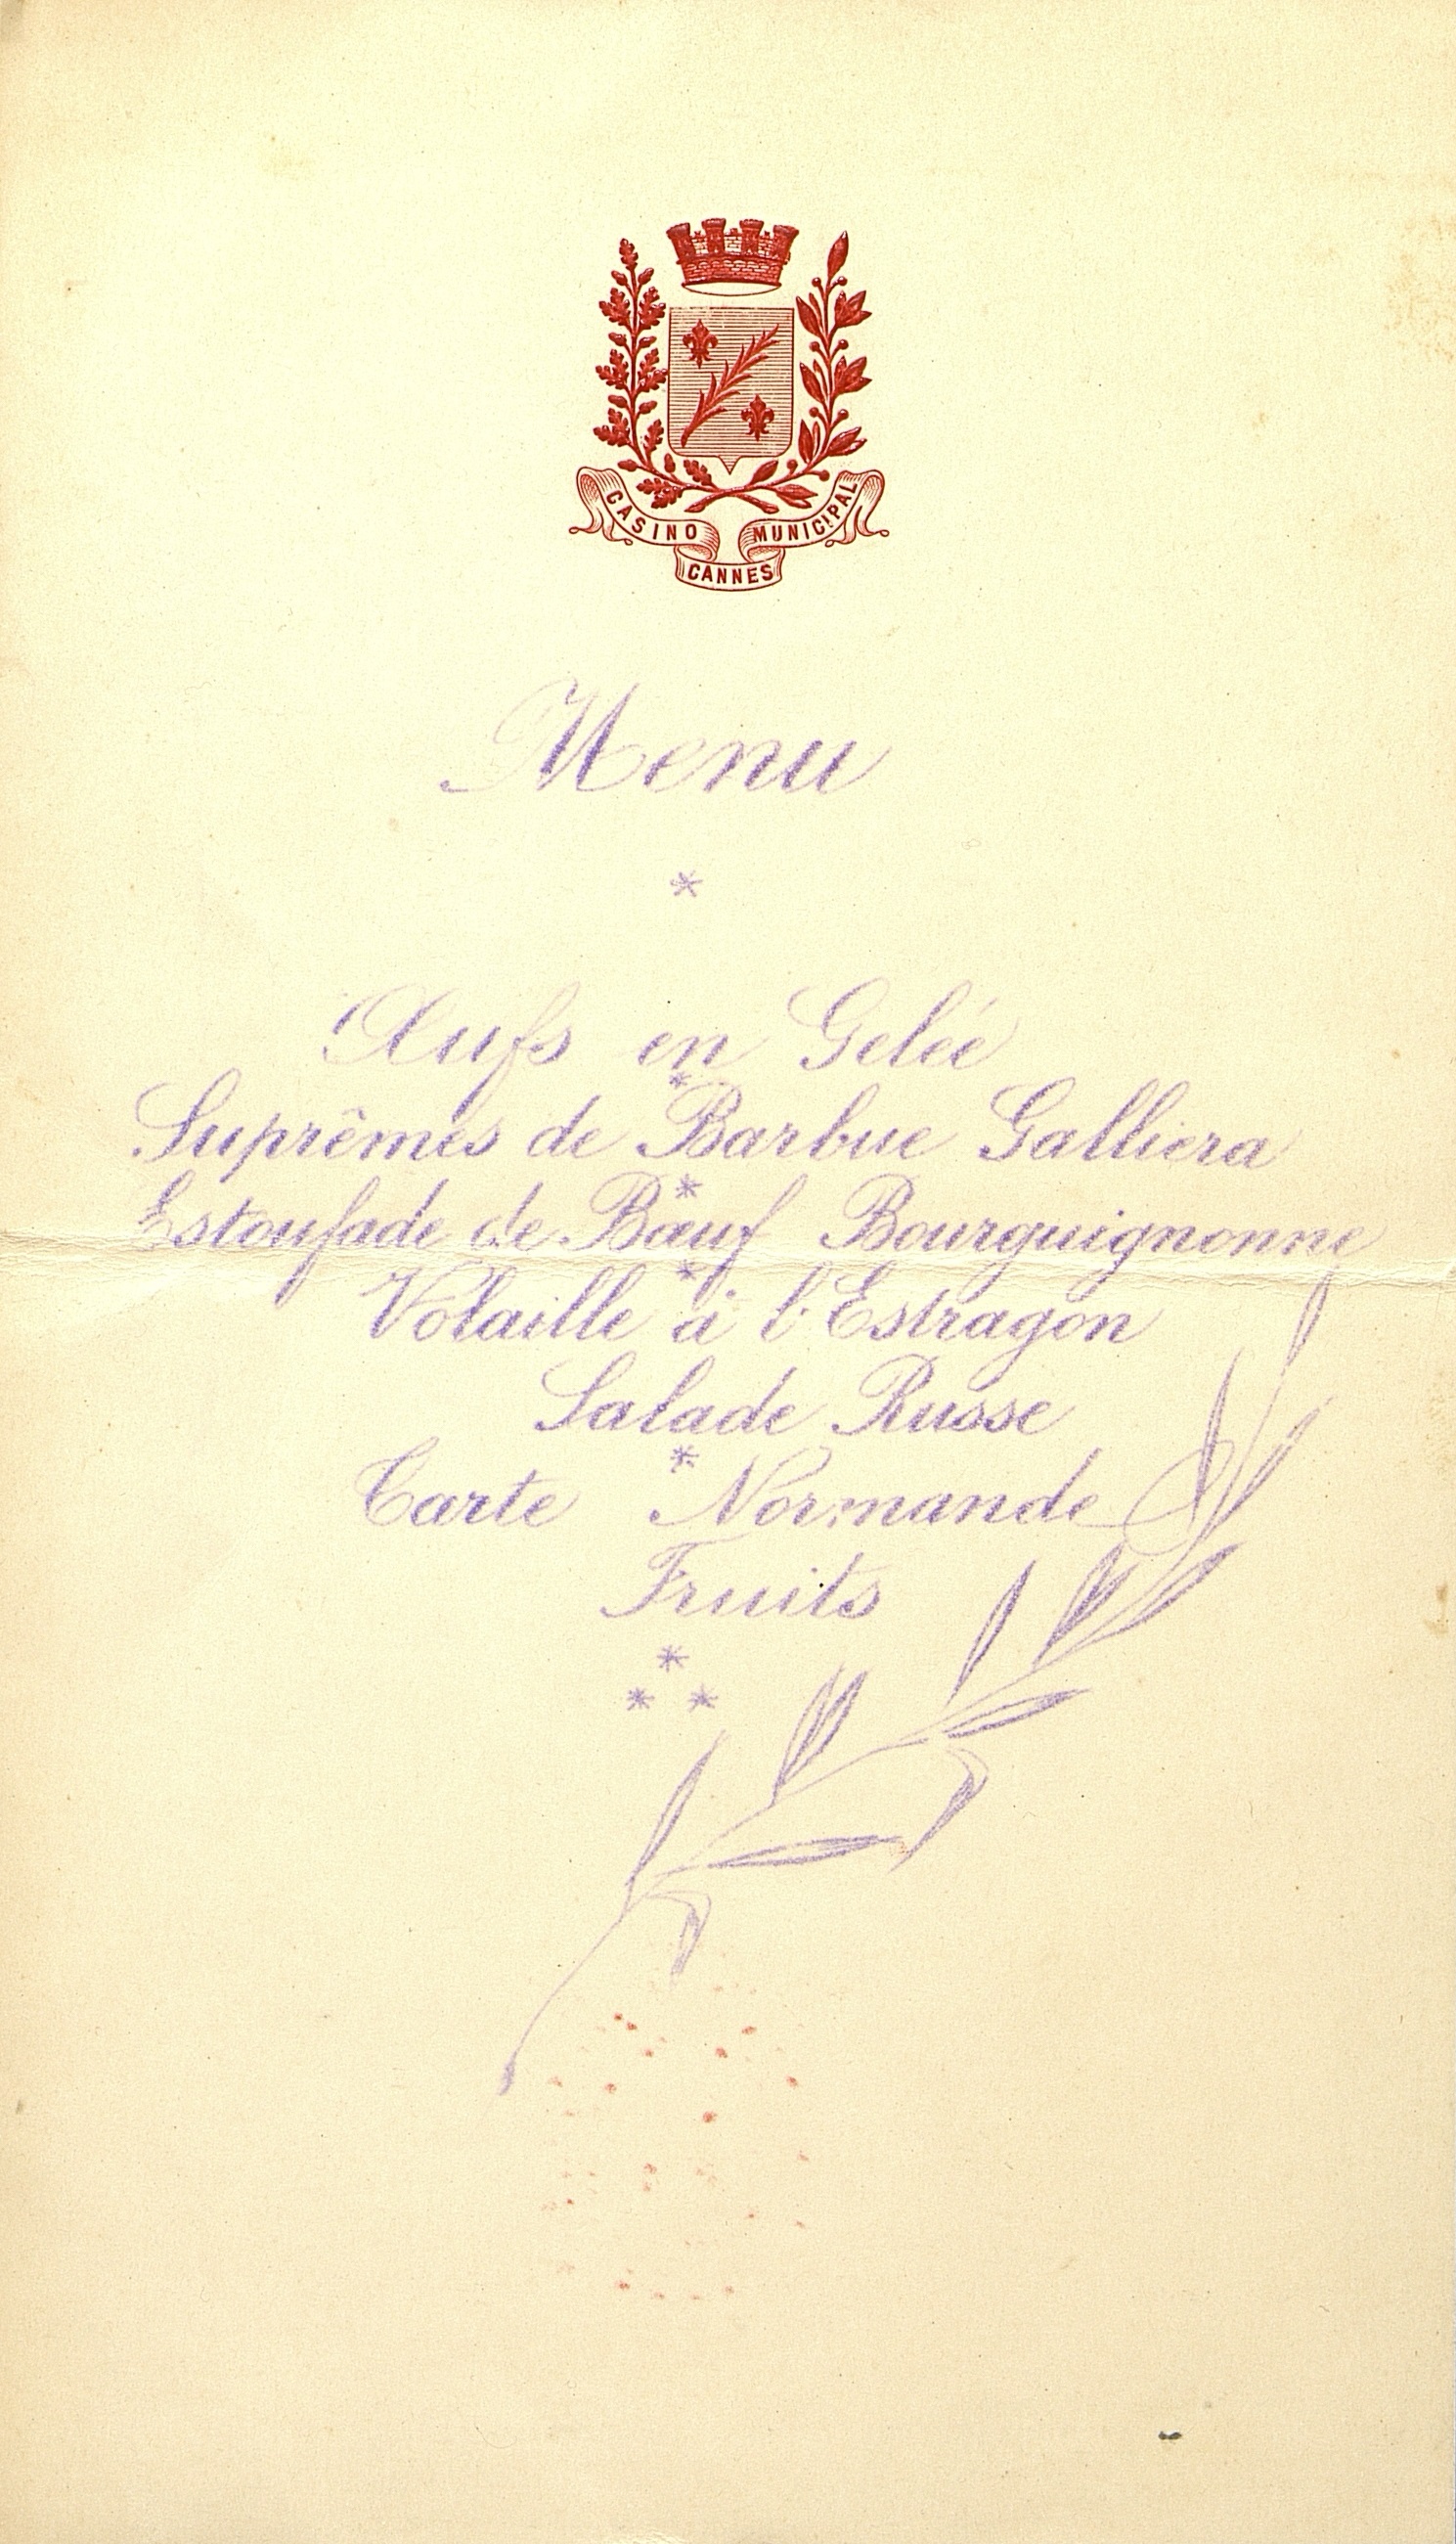 CASINO MUNICIPAL
CANNES
Menu
*
Œufs en Gelée
*
Suprêmes de Barbue Galliera
*
Estoufade de Bœuf Bourguignonne
*
Volaille à l'Estragon
Salade Russe
*
Tarte Normande
Fruits
*
* *